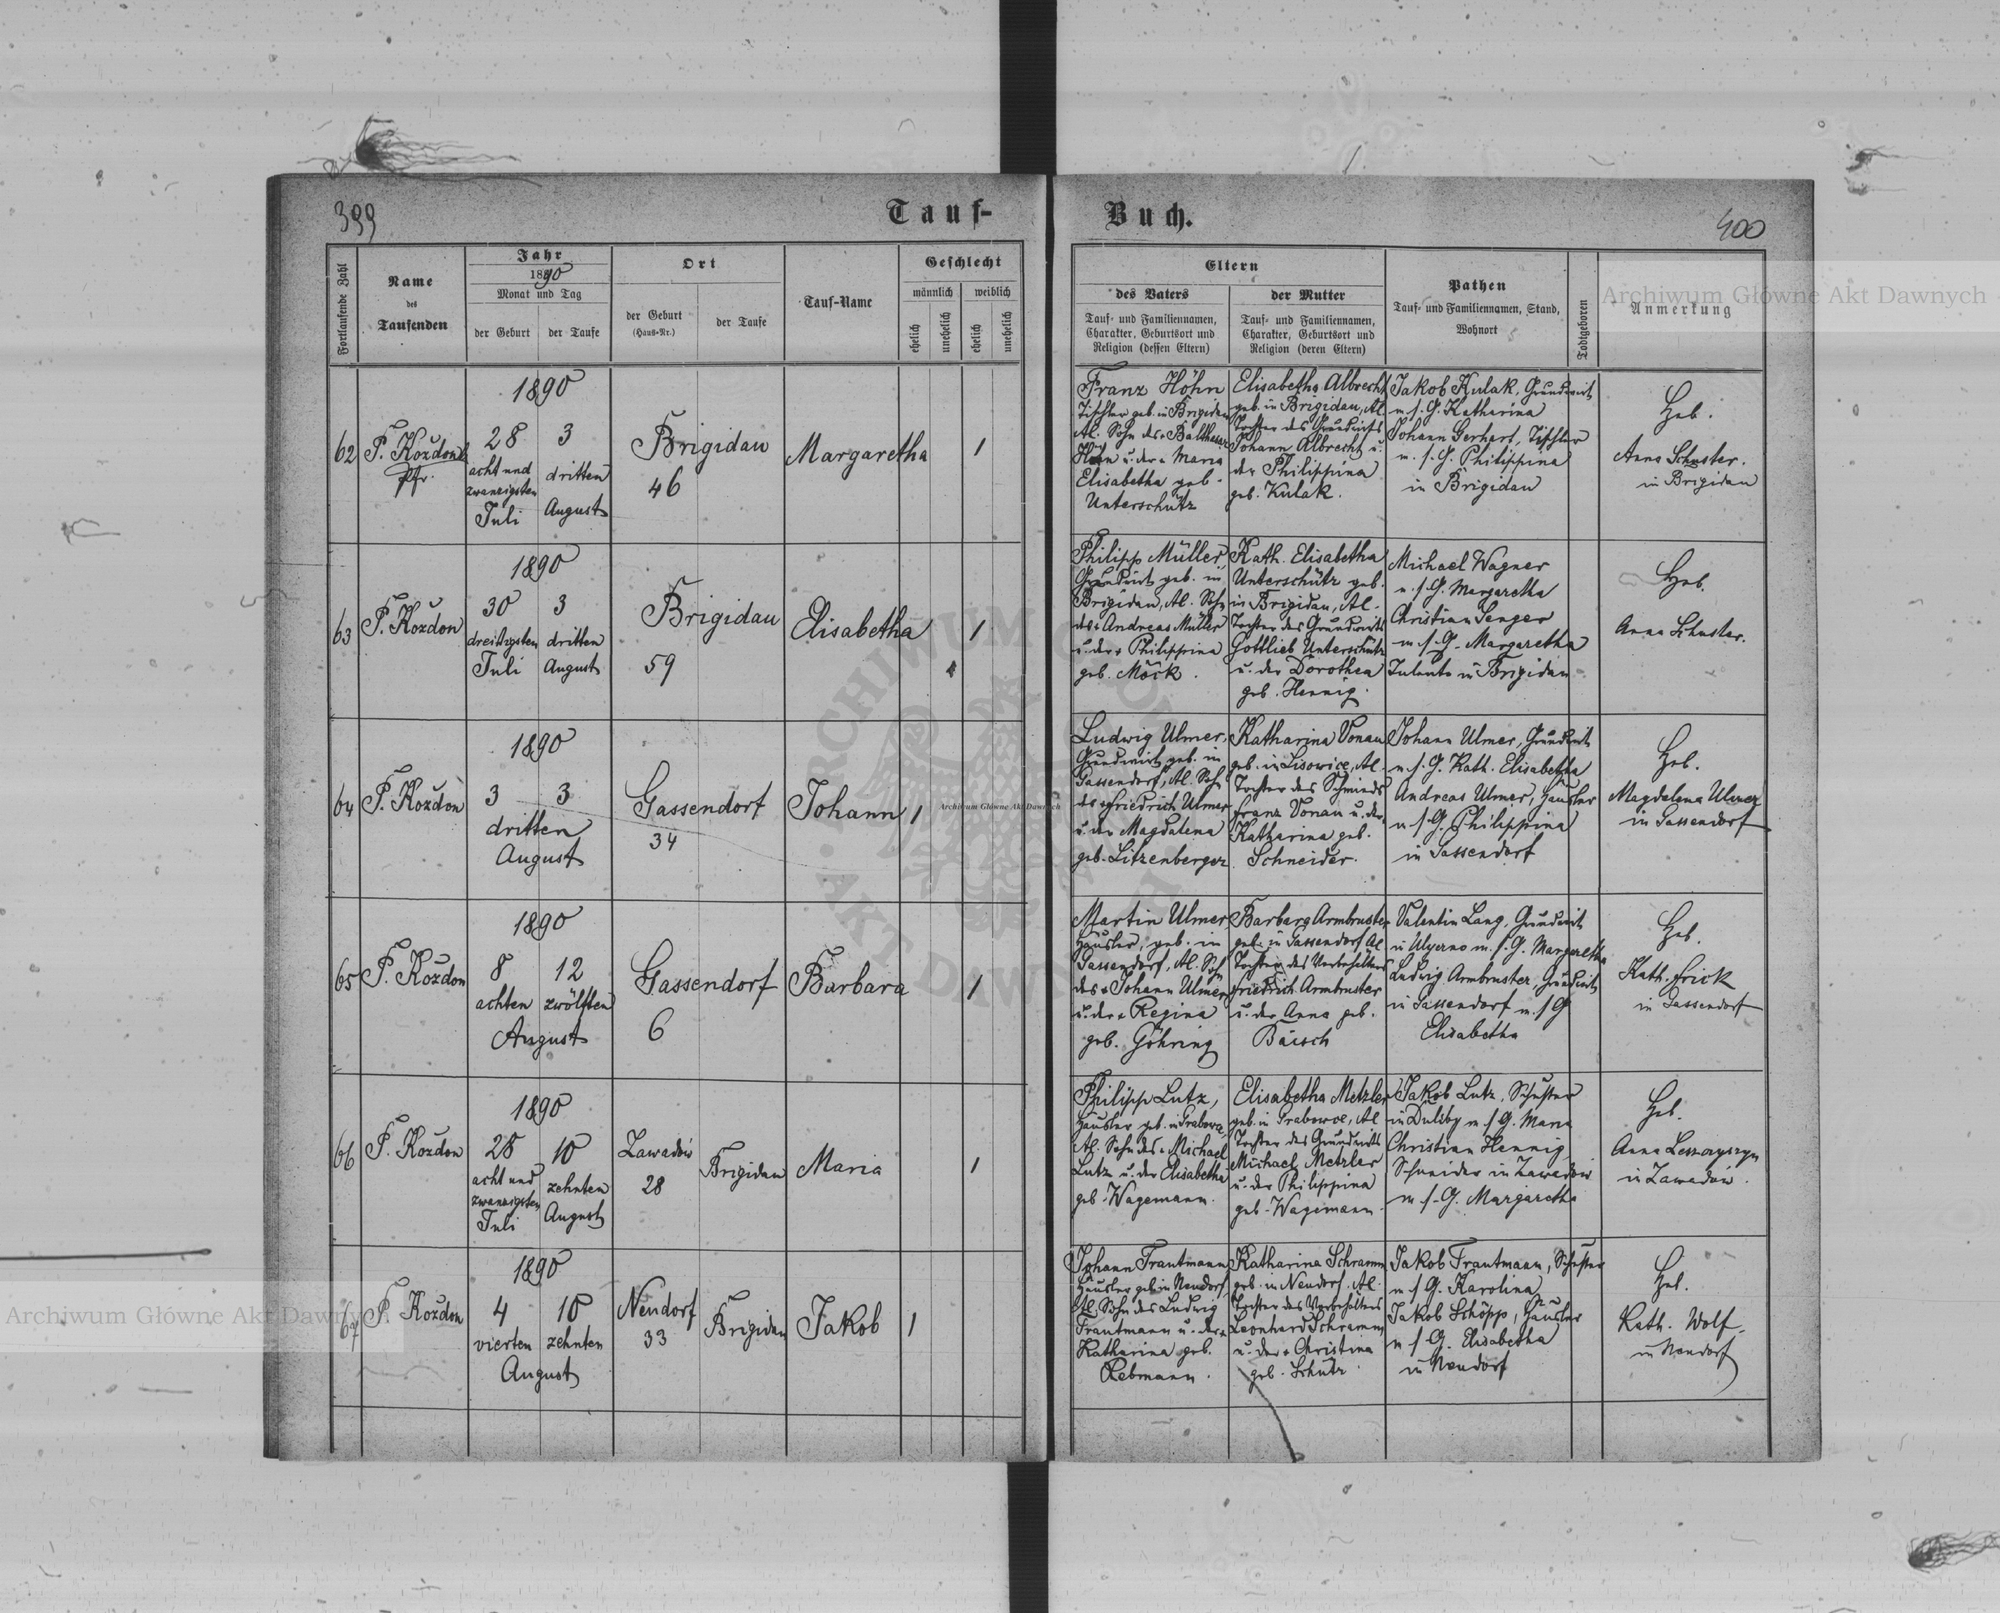 399
Tauf-
Buch.
400
Fortlaufende Zahl
Name
des
Taufenden
Jahr
1890
Monat und Tag
der Geburt
der Taufe
Ort
der Geburt
(Haus-Nr.)
der Taufe
Tauf-Name
Geschlecht
männlich
weiblich
ehelich
unehelich
ehelich
unehelich
Eltern
des Vaters
Tauf- und Familiennamen,
Charakter, Geburtsort und
Religion (dessen Eltern)
der Mutter
Tauf- und Familiennamen,
Charakter, Geburtsort und
Religion (deren Eltern)
Pathen
Tauf- und Familiennamen, Stand,
Wohnort
Todtgeboren
Anmerkung
62
P. Kozdon
Pfr.
1890
28
acht und
zwanzigsten
Juli
3
dritten
August
Brigidau
46
Margaretha
1
Franz Höhn
Tischler geb. in Brigidau
Al. Sohn des + Balthasar
Höhn u. der + Maria
Elisabetha geb.
Unterschütz
Elisabetha Albrecht
geb. in Brigidau, Al.
Tochter des Grundwirts
Johann Albrecht u.
der Philippina
geb. Kulak.
Jakob Kulak, Grundwirt
u. s. G. Katharina
Johann Gerhart, Tischler
u. s. G. Philippina
in Brigidau
Heb.
Anna Schuster.
in Brigidau
63
P. Kozdon
1890
30
dreißigsten
Juli
3
dritten
August
Brigidau
59
Elisabetha
1
Philipp Müller,
Grundwirt geb. in
Brigidau, Al. Sohn
des + Andreas Müller
u. der + Philippina
geb. Möck.
Kath. Elisabetha
Unterschütz geb.
in Brigidau, Al.
Tochter des Grundwirts
Gottlieb Unterschütz
u. der Dorothea
geb. Hennig.
Michael Wagner
u. s. G. Margaretha
Christian Senger
u. s. G. Margaretha
in Brigidau
Heb.
Anna Schuster.
64
P. Kozdon
1890
3
3
dritten
August
Gassendorf
34
Johann
1
Ludwig Ulmer,
Grundwirt geb. in
Gassendorf, Al. Sohn
des + Friedrich Ulmer
u. der Magdalena
geb. Litzenberger
Katharina Vonau
geb. in Lisowice, Al.
Tochter des Schmieds
Franz Vonau u. der
Katharina geb.
Schneider.
Johann Ulmer, Grundwirt
u. s. G. Kath. Elisabetha
Andreas Ulmer, Häusler
u. s. G. Philippina
in Gassendorf
Heb.
Magdalena Ulmer
in Gassendorf
65
P. Kozdon
1890
8
achten
12
zwölften
August
Gassendorf
6
Barbara
1
Martin Ulmer
Häusler, geb. in
Gassendorf, Al. Sohn
des + Johann Ulmer
u. der + Regina
geb. Göhring
Barbara Armbruster
geb. in Gassendorf Al
Tochter des Vorbehälters
Friedrich Armbruster
u. der Anna geb.
Baisch
Valentin Lang, Grundwirt
in Ugerno u. s. G. Margaretha
Ludwig Armbruster, Grundwirt
in Gassendorf u. s. G
Elisabetha
Heb.
Kath. Frick
in Gassendorf
66
P. Kozdon
1890
28
acht und
zwanzigsten
Juli
10
zehnten
August
Zawadow
28
Brigidau
Maria
1
Philipp Lutz,
Häusler geb. in Grabowce
Al. Sohn des + Michael
Lutz u. der Elisabetha
geb. Wagemann.
Elisabetha Metzler
geb. in Grabowce, Al
Tochter des Grundwirts
Michael Metzler
u. der Philippina
geb. Wagemann
Jakob Lutz, Schuster
in Duliby u. s. G. Maria
Christian Hennig,
Schneider in Zawadow
u. s. G. Margaretha
Heb.
Anna Leszczyszyn
in Zawadow.
67
P. Kozdon
1890
4
vierten
10
zehnten
August
Neudorf
33
Brigidau
Jakob
1
Johann Trautmann
Häusler geb. in Neudorf
Al. Sohn des Ludwig
Trautmann u. der +
Katharina geb.
Rebmann.
Katharina Schramm
geb. in Neudorf, Al.
Tochter des Vorbehälters
Leonhard Schramm
u. der + Christina
geb. Schütz.
Jakob Trautmann, Schuster
u. s. G. Karolina
Jakob Schöpp, Häusler
u. s. G. Elisabetha
in Neudorf
Heb.
Kath. Wolf
in Neudorf
Archiwum Główne Akt Dawnych
Archiwum Główne Akt Dawnych
Archiwum Główne Akt Dawnych
ARCHIWUM
AKT DAWNYCH